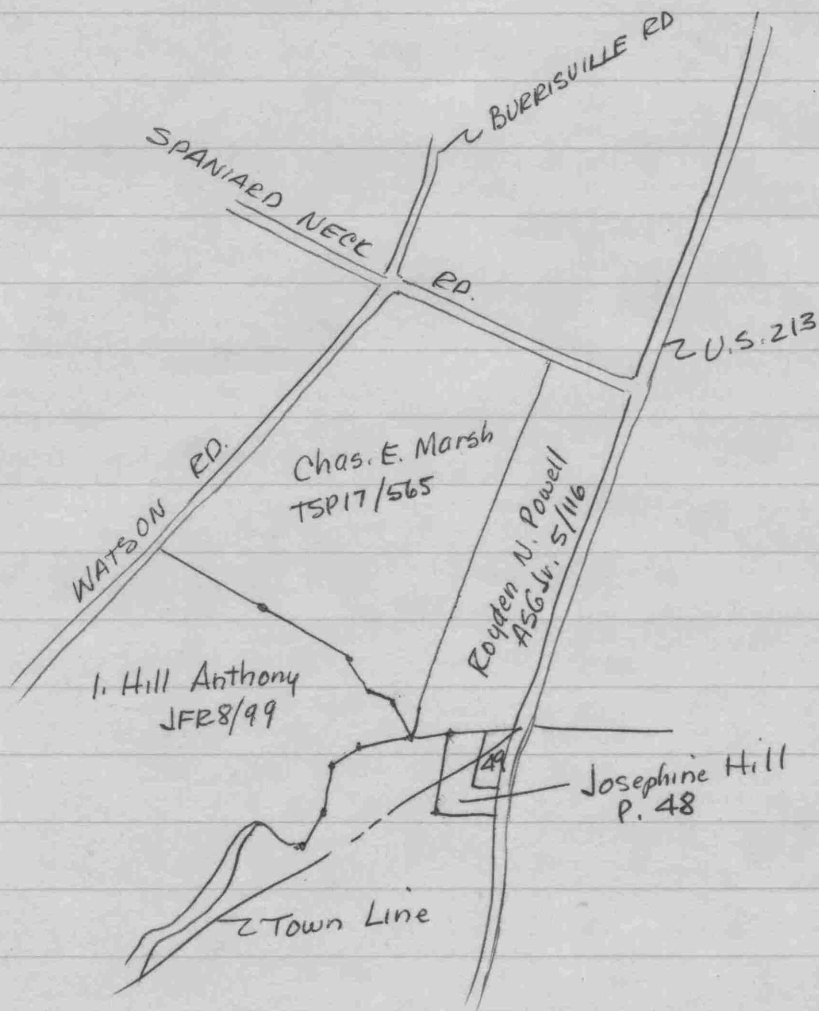 BURRISVILLE RD
SPANIARD NECK RD.
U.S. 213
WATSON RD.
Chas. E. Marsh
TSP17/565
Royden N. Powell
ASGJr. 5/116
I. Hill Anthony
JFR8/99
49
Josephine Hill
P. 48
Town Line